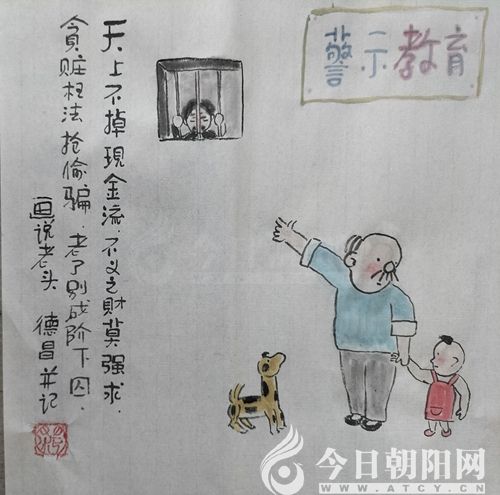 警示教育
天上不掉現金流.不义之財莫强求.
貪赃枉法抢偷骗.老了别成阶下囚.
画说老头 德昌并记
今日朝阳网
WWW.ATCY.CN